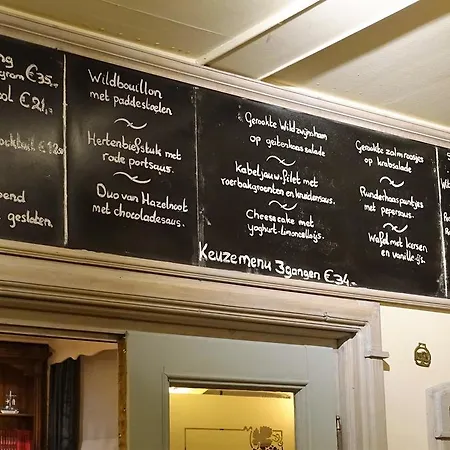 ng
gram €35,-
ol €21,-
ocktail €12.50
end
gesloten
Wildbouillon
met paddestoelen
Hertenbiefstuk met
rode portsaus.
Duo van Hazelnoot
met chocoladesaus.
Gerookte Wildzwijnsham
op geitenkaassalade
Kabeljauwfilet met
roerbakgroenten en kruidensaus.
Cheesecake met
yoghurt-limoncelloijs.
Gerookte zalmroosjes
op krabsalade
Runderhaaspuntjes
met pepersaus.
Wafel met kersen
en vanille-ijs.
Keuzemenu 3gangen €34,-